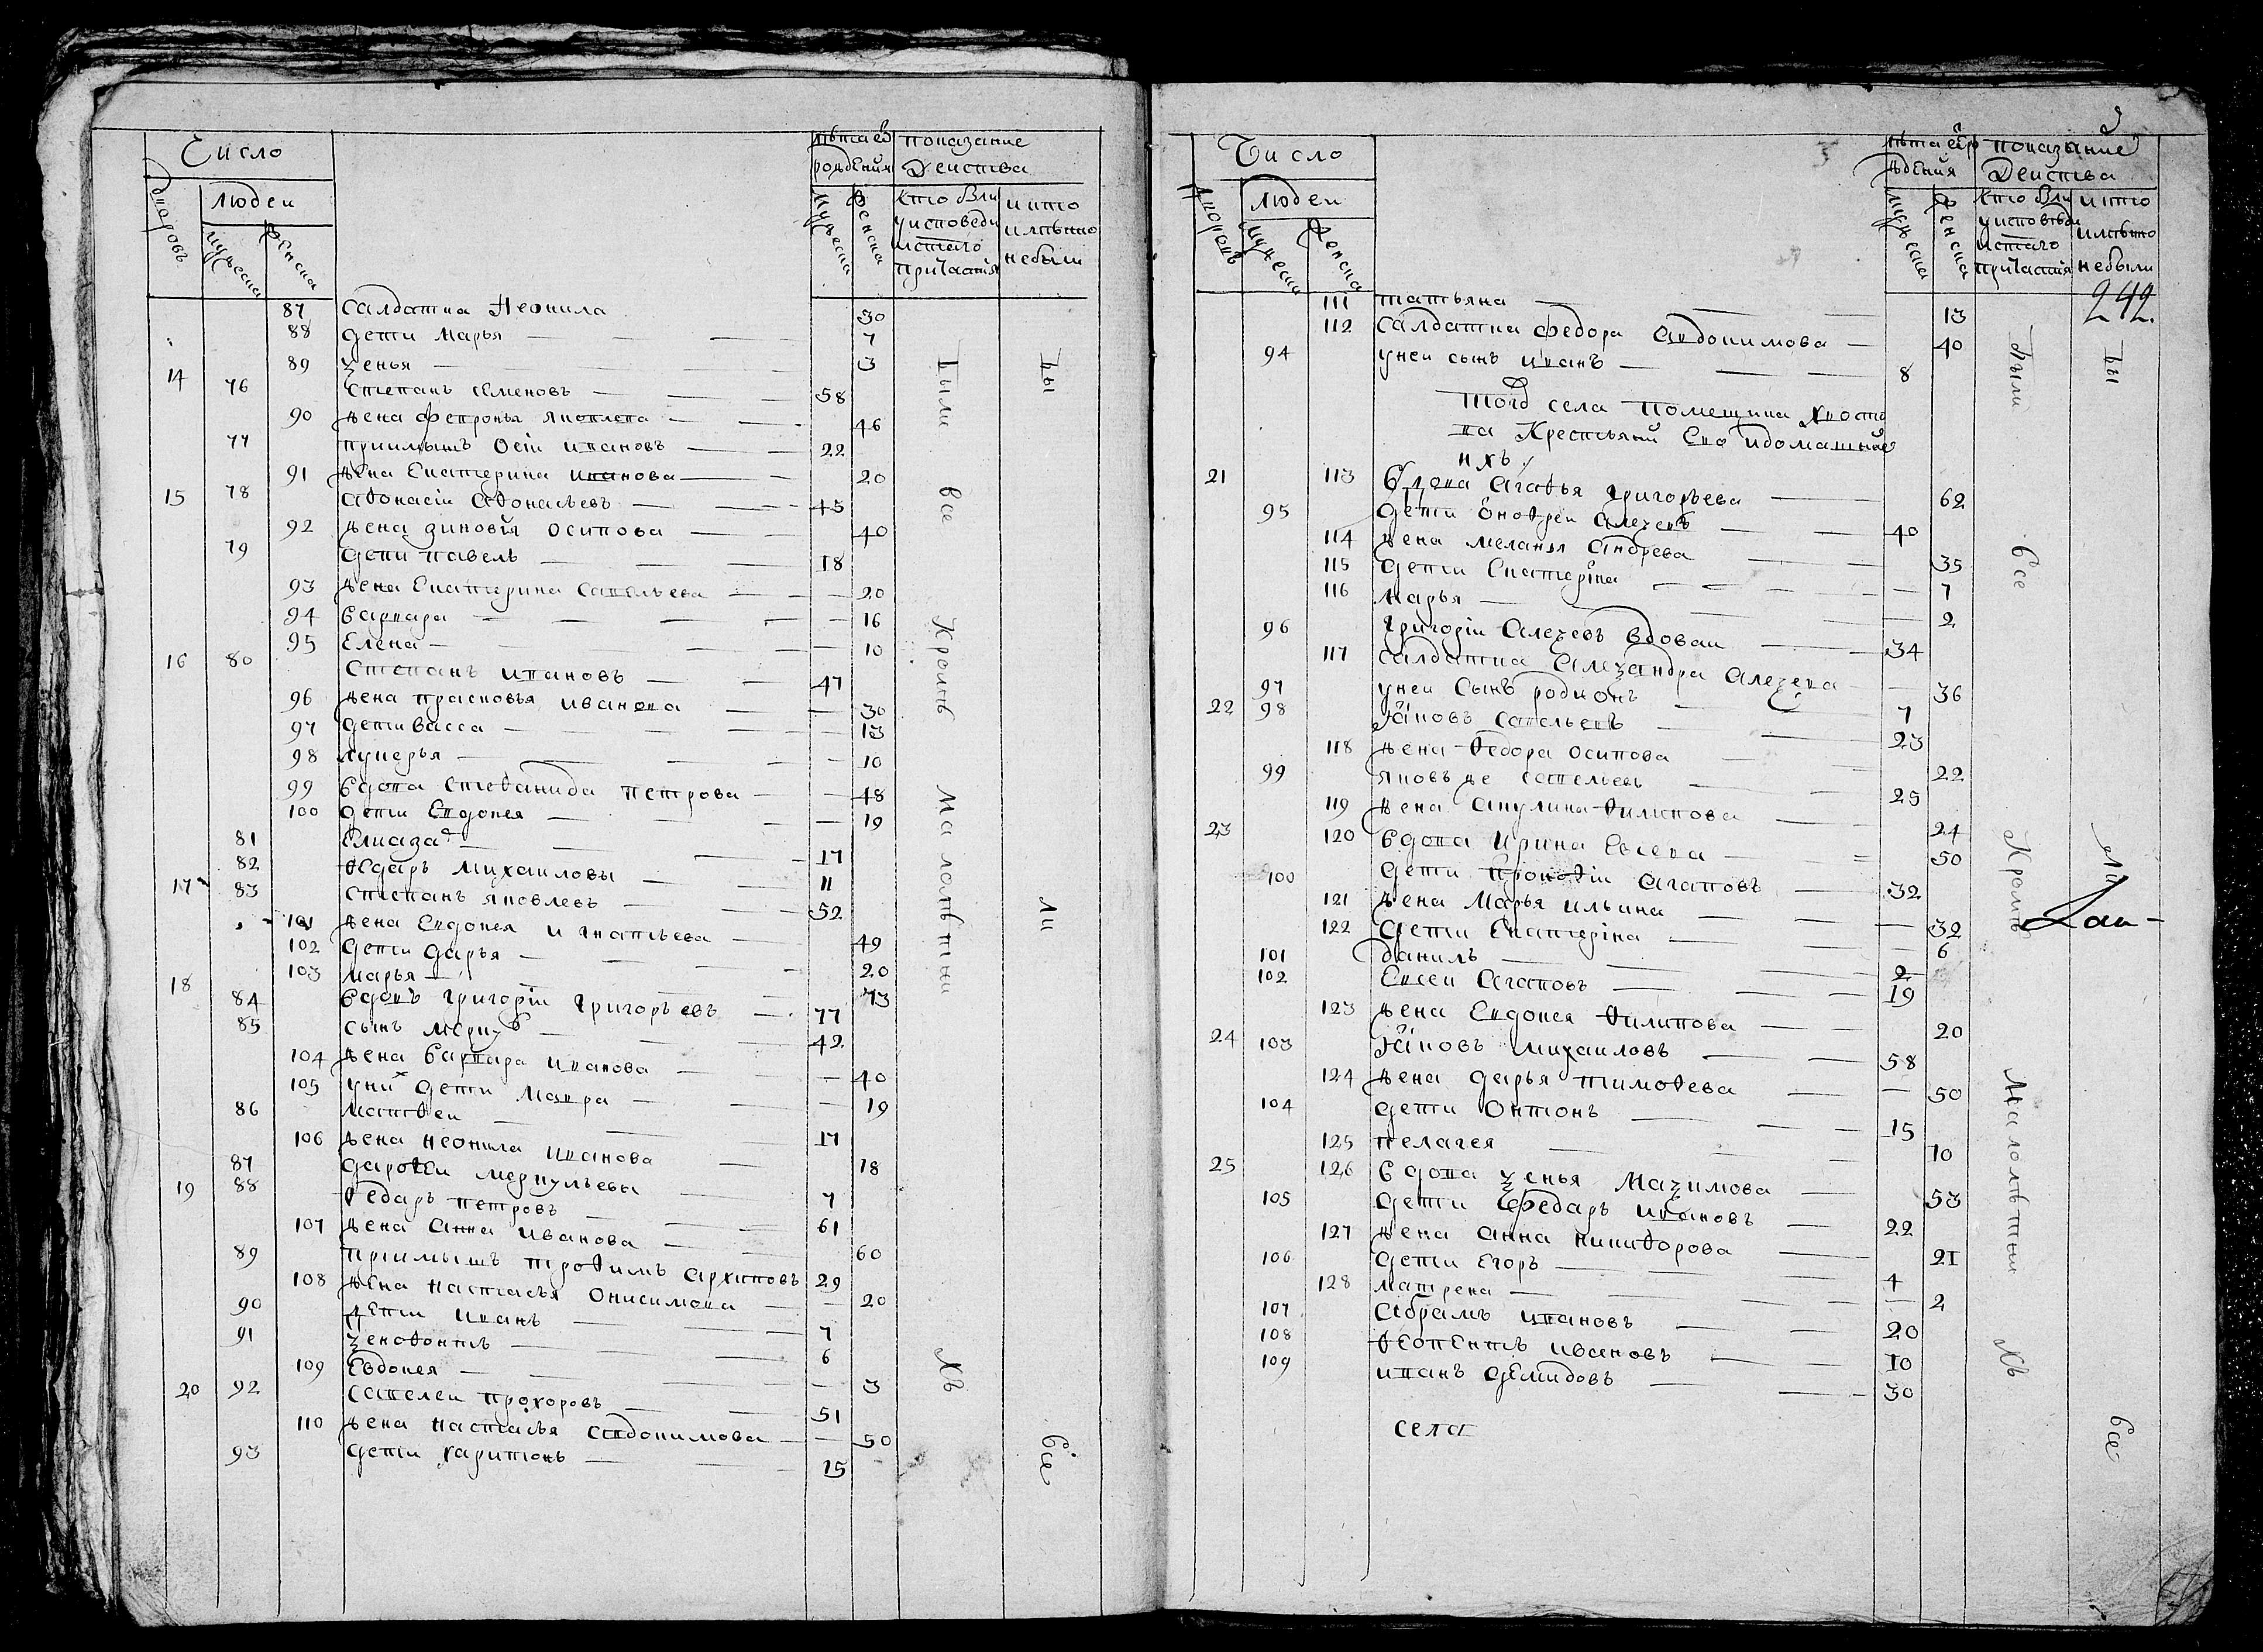 Число
лѣта ѿ
рождения
показание
Деиства
дворовъ
людеи
мужеска
женска
мужеска
женска
кто были
у исповеди
и стаго
причастия
и кто
имянно
небыли
87 салдатка Неонила 30
88 дети Марья — 7
89 ѯенья — 3
14 76 Степанъ Семеновъ — 58
90 жена Фепронья Яковлева — 46
77 приимышъ Осіи Ивановъ — 22
91 жена Екатерина Иванова — 20
15 78 Аѳонасіи Аѳонасьевъ — 45
92 жена Зиновія Осипова — 40
79 дети Павелъ — 18
93 жена Екатерина Савельева — 20
94 Варвара — 16
95 Елена — 10
16 80 Степанъ Ивановъ — 47
96 жена Прасковья Иванова — 30
97 дети Васса — 13
98 Лукерья — 10
99 вдова Стеѳанида Петрова — 48
100 дети Евдокея — 19
81 Елиаза — 17
82 Ѳедаръ Михаиловы — 11
17 83 Степанъ Яковлевъ — 52
101 жена Евдокея Игнатьева — 49
102 дети Дарья — 20
103 Марья — 13
18 84 вдовъ Григоріи Григорьевъ — 77
85 сынъ Мерку — 42
104 жена Варвара Иванова — 40
105 у них дети Мавра — 19
86 Матѳеи — 17
106 жена Неонила Иванова — 18
87 Дароѳеи Меркульева — 7
19 88 Ѳедаръ Петровъ — 61
107 жена Анна Иванова — 60
89 приимышъ Троѳимъ Архиповъ 29
108 жена Настасья Онисимова — 20
90 дети Иванъ — 7
91 ѯеноѳонтъ — 6
109 Евдокея — 3
20 92 Савелеи Прохоровъ — 51
110 жена Настасья Авдокимова — 50
93 дети Харитонъ — 15
Были все Кромѣ малолѣтныхъ
Бы ли все
Число
лѣта ѿ ро
ждения
показание
Деиства
дворовъ
людеи
мужеска
женска
мужеска
женска
кто были
у исповѣди
и стаго
причастия
и кто
имянно
небыли
242.
111 Татьяна — 13
112 салдатка Федора Авдокимова — 40
94 у неи сынъ Иванъ — 8
тогѡ села помещика Хвосто
ва Крестьяни Ево и домашние
ихъ
21 113 вдова Агаѳья Григорьева — 62
95 дети Оноѳреи Алеѯевъ — 40
114 жена Меланья Андреева — 35
115 дети Екатеріна — 7
116 Марья — 2
96 Григоріи Алеѯевъ вдоваи — 34
117 салдатка Алеѯандра Алеѯева — 36
97 у неи сынъ Родионъ — 7
22 98 Іяковъ Савельевъ — 23
118 жена Ѳедора Осипова — 22
99 Яковъ же Савельевъ — 25
119 жена Акулина Ѳилипова — 24
23 120 вдова Ирина Евсеева — 50
100 дети Прокоѳіи Агаповъ — 32
121 жена Марья Ильина — 32
122 дети Екатеріна — 6
101 Данилъ — 2
102 Евсеи Агаповъ — 19
123 жена Евдокея Ѳилипова — 20
24 103 Іяковъ Михаиловъ — 58
124 жена Дарья Тимоѳеева — 50
104 дети Онтонъ — 15
125 Пелагея — 10
25 126 вдова ѯенья Маѯимова — 53
105 дети Федаръ Ивановъ — 22
127 жена Анна Никиѳорова — 21
106 дети Егоръ — 4
128 Матрена — 2
107 Абрамъ Ивановъ — 20
108 Ѳеопентъ Ивановъ — 10
109 Иванъ Демидовъ — 30
села
Были все Кромѣ Малолѣтныхъ
Бы ли все